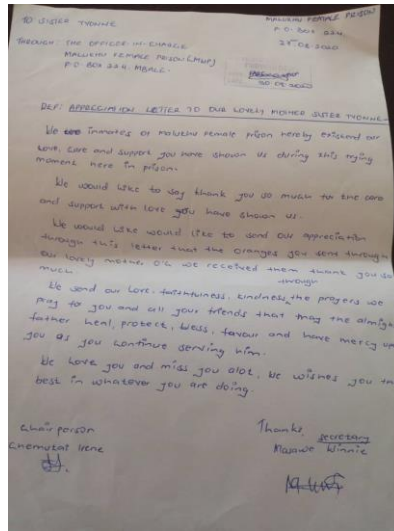 TO SISTER YVONNE
MALUKHU FEMALE PRISON
P.O. BOX 224.
25TH 08-2020
THROUGH: THE OFFICER IN CHARGE
MALUKHU FEMALE PRISON (MWP)
P.O. BOX 224. MBALE.
REF: APPRECIATION LETTER TO OUR LOVELY MOTHER SISTER YVONNE
We inmates of malukhu Female prison hereby extend our
love, care and support you have shown us during this trying
moment here in prison.
We would like to say thank you so much for the care
and support with love you have shown us.
We would like would like to send our appreciation
through this letter that the oranges you sent through
our lovely mother O/c we received them thank you so
much.
through
We send our love, faithfulness, kindness, the prayers we
pray to you and all your friends that may the almigh
father heal, protect, bless, favour and have mercy up
you as you continue serving him.
We love you and miss you alot, we wishes you th
best in whatever you are doing.
Chairperson
Chemutai Irene
Thanks,
secretary
Masawe Winnie